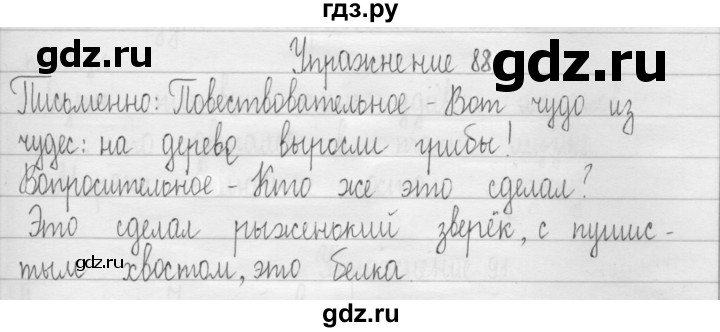 гдз.ру
gdz.ru gdz.ru
Упражнение 88
Письменно: Повествовательное - Вот чудо из
чудес: на дереве выросли грибы!
Вопросительное - Кто же это сделал?
Это сделал рыженький зверёк, с пушис-
тым хвостом, это белка
gdz.ru gdz.ru
gdz.ru